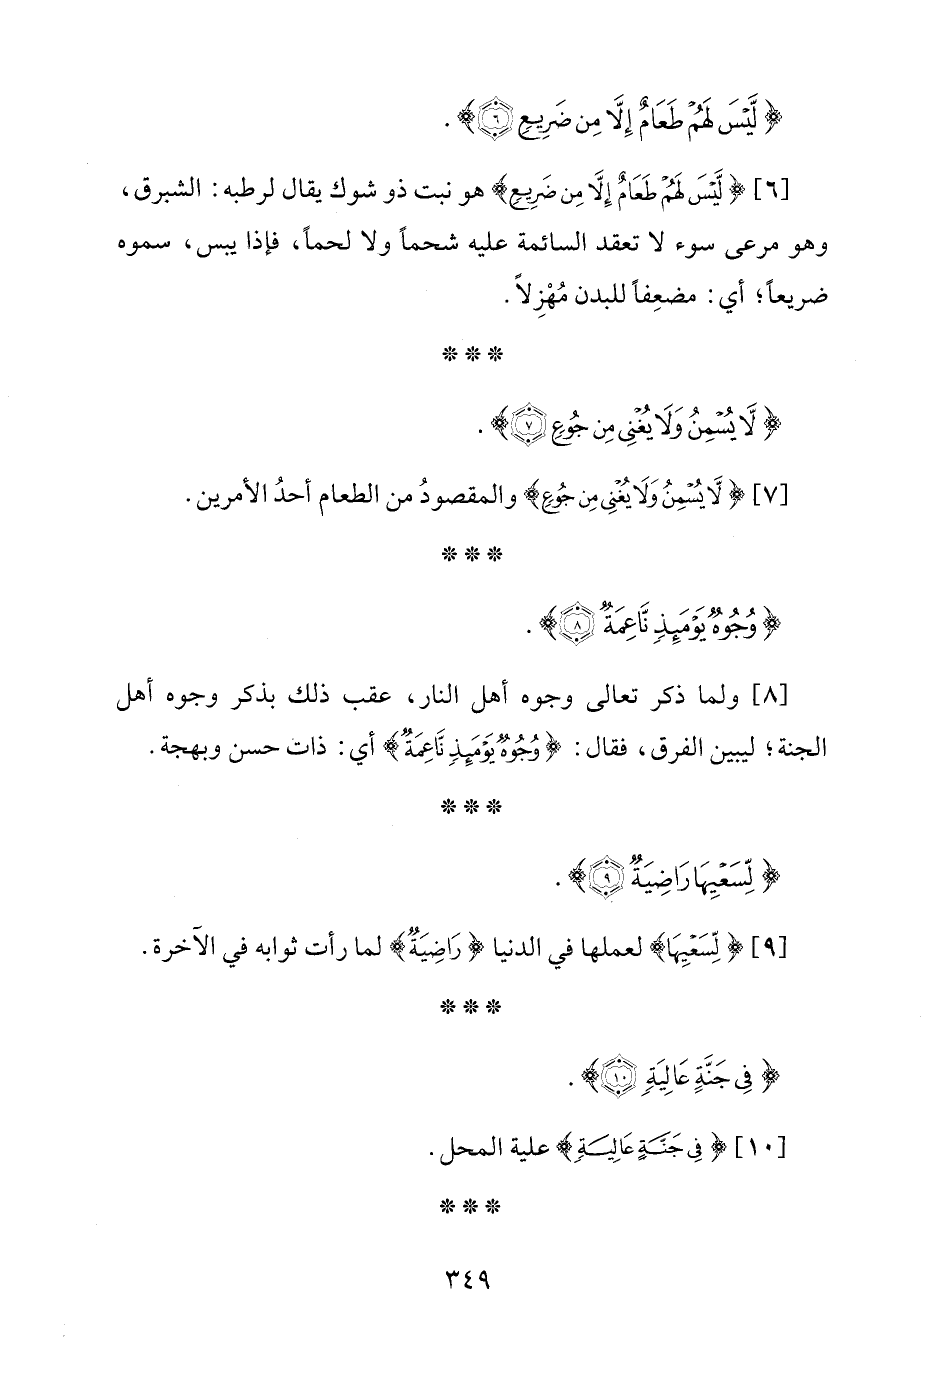 ﴿ لَّيْسَ لَهُمْ طَعَامٌ إِلَّا مِن ضَرِيعٍ ٦ ﴾ .
[٦] ﴿ لَّيْسَ لَهُمْ طَعَامٌ إِلَّا مِن ضَرِيعٍ﴾ هو نبت ذو شوك يقال لرطبه: الشبرق،
وهو مرعى سوء لا تعقد السائمة عليه شحماً ولا لحماً، فإذا يبس، سموه
ضريعاً؛ أي: مضعِفاً للبدن مُهْزِلاً.
* * *
﴿ لَّا يُسْمِنُ وَلَا يُغْنِي مِن جُوعٍ ٧ ﴾ .
[٧] ﴿ لَّا يُسْمِنُ وَلَا يُغْنِي مِن جُوعٍ﴾ والمقصودُ من الطعام أحدُ الأمرين.
* * *
﴿ وُجُوهٌ يَوْمَئِذٍ نَّاعِمَةٌ ٨ ﴾ .
[٨] ولما ذكر تعالى وجوه أهل النار، عقب ذلك بذكر وجوه أهل
الجنة؛ ليبين الفرق، فقال: ﴿ وُجُوهٌ يَوْمَئِذٍ نَّاعِمَةٌ﴾ أي: ذات حسن وبهجة.
* * *
﴿ لِّسَعْيِهَا رَاضِيَةٌ ٩ ﴾ .
[٩] ﴿ لِّسَعْيِهَا﴾ لعملها في الدنيا ﴿ رَاضِيَةٌ﴾ لما رأت ثوابه في الآخرة.
* * *
﴿ فِي جَنَّةٍ عَالِيَةٍ ١٠ ﴾ .
[١٠] ﴿ فِي جَنَّةٍ عَالِيَةٍ﴾ علية المحل.
* * *
٣٤٩